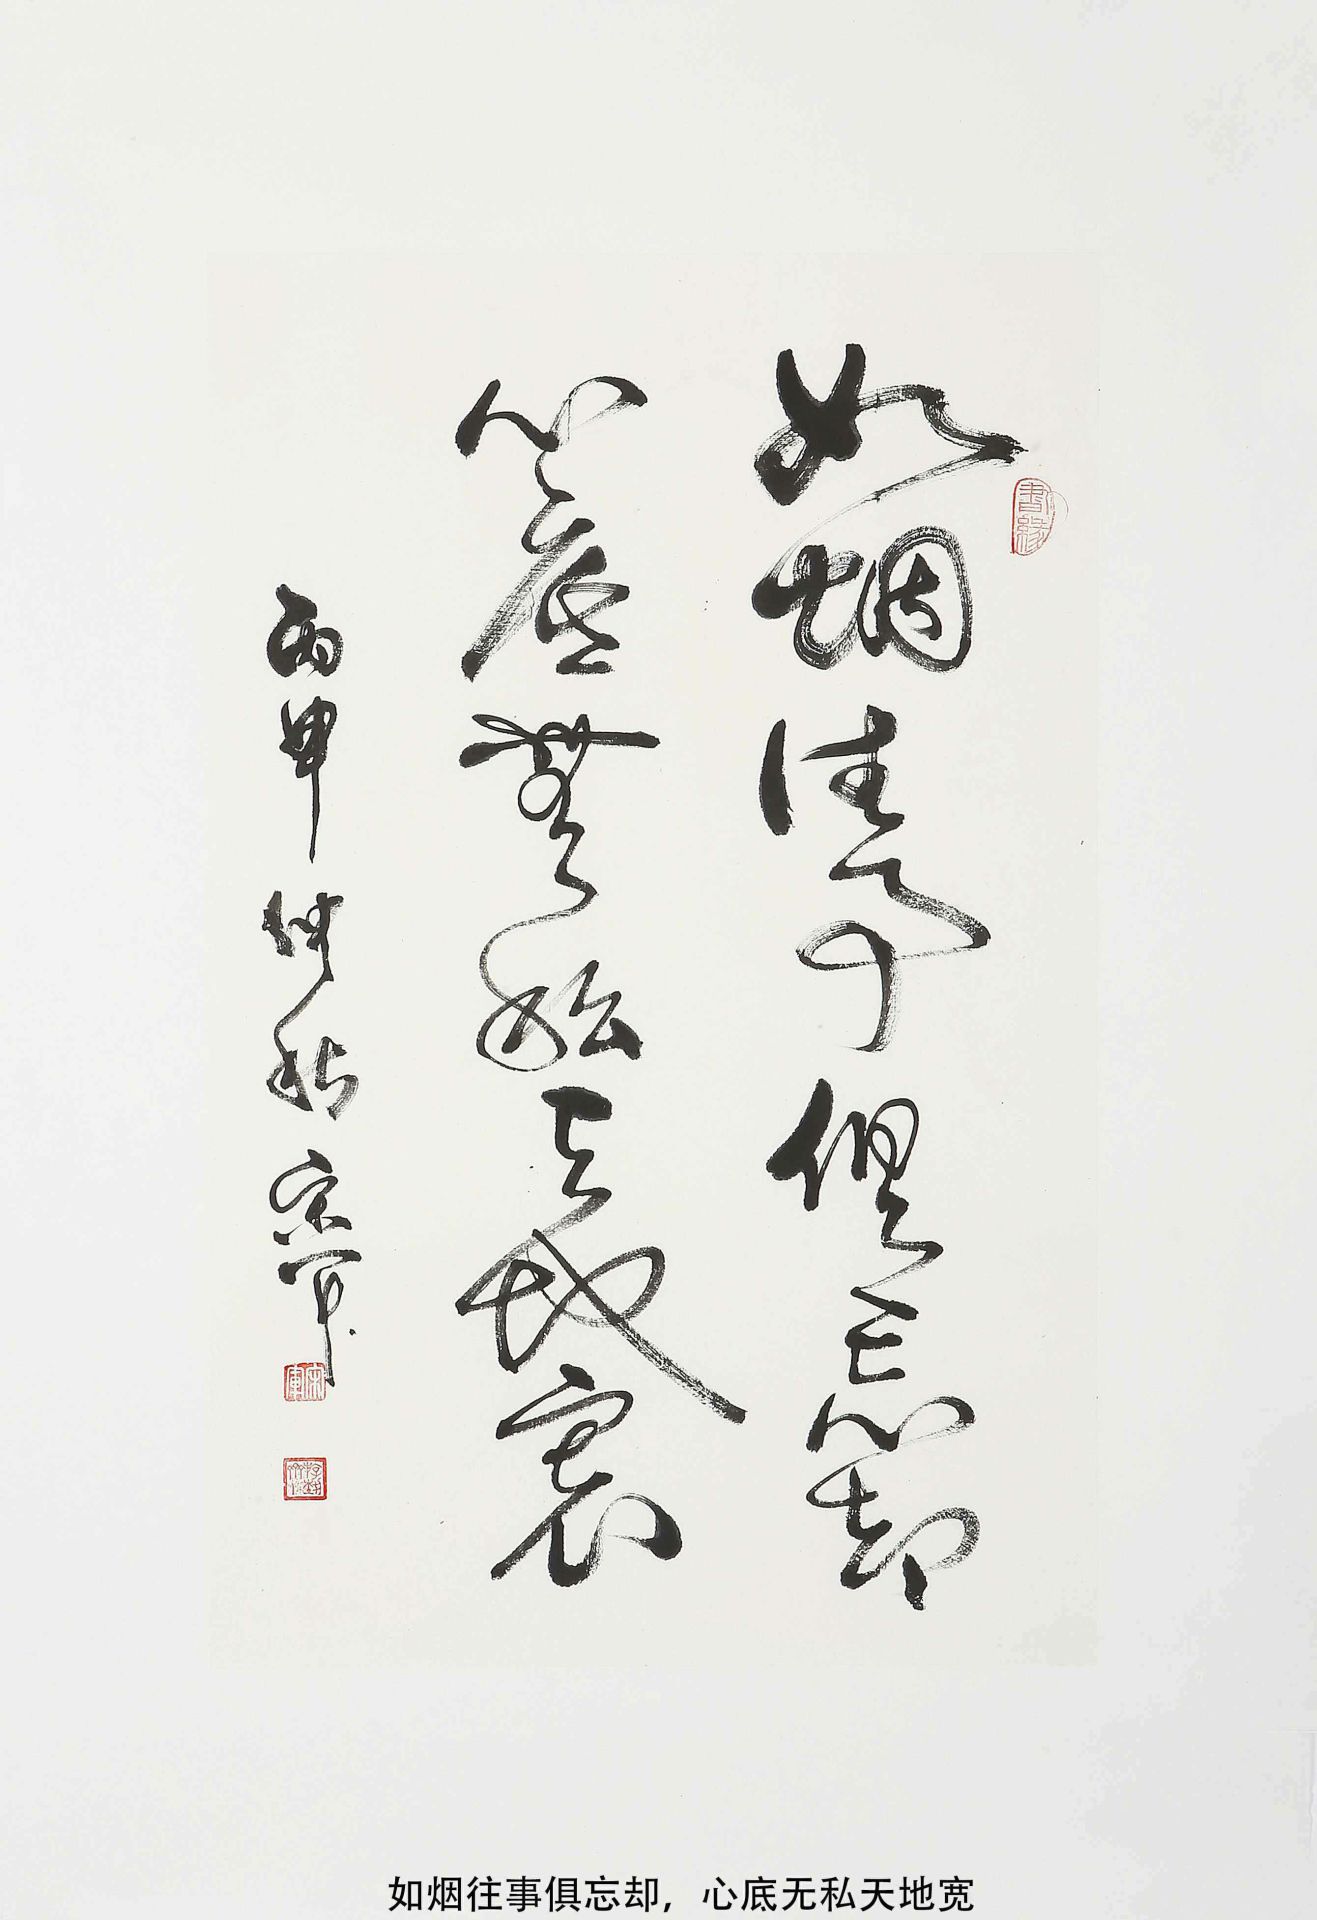 如烟往事俱忘却
心底無私天地宽
丙申仲秋宋军
書緣
宋軍
如烟往事俱忘却，心底无私天地宽